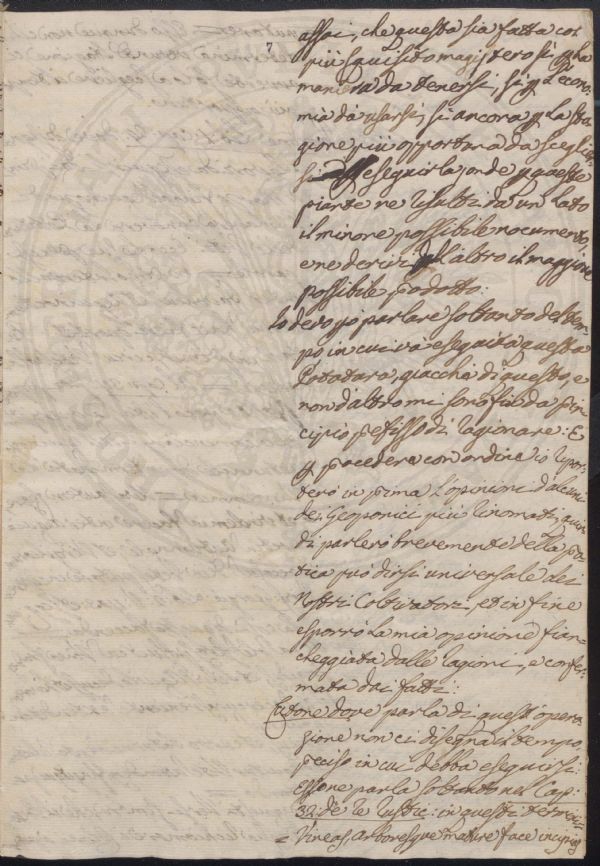 7
assai, che questa sia fatta col
più squisito magistero sì p la
maniera da tenersi, sì p l'econo-
mia da usarsi, sì ancora p la sta-
gione più opportuna da sceglier-
si eseguirla, onde p queste
piante ne risulti da un lato
il minore possibile nocumento,
e ne derivi dall'altro il maggiore
possibile prodotto:
Io devo quì parlare soltanto del tem-
po in cui và eseguita questa
Potatura, giacchè di questo, e
non d'altro mi sono fin da prin-
cipio prefisso di ragionare: E
p procedere con ordine io ripor-
terò in prima l'opinioni d'alcuni
dei Geoponici più rinomati, quin-
di parlerò brevemente della pra-
tica può dirsi universale dei
Nostri Coltivatori, et in fine
esporrò la mia opinione fian-
cheggiata dalle ragioni, e confer-
mata dai fatti:
Catone dove parla di quest'opera-
zione non ci disegna il tempo
preciso in cui debba eseguirsi:
Essone parla soltanto nel Cap:
32: de re rustic: in questi termini
= Vineas, arboresque mature face incipias